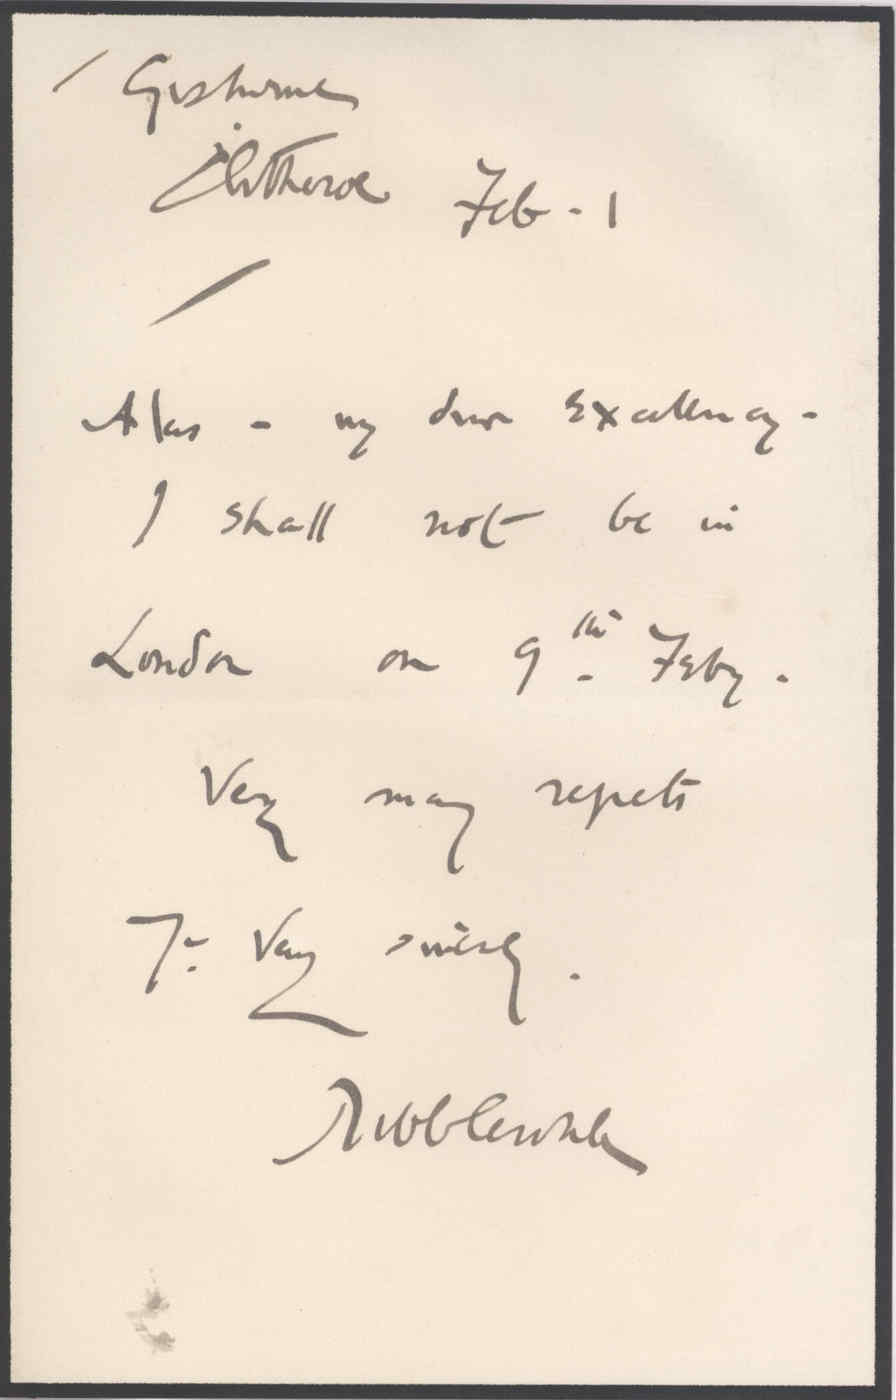 Gisburne
Clitheroe Feb - 1
Alas - my dear Excellency -
I shall not be in
London on 9th Feby.
Very many regrets
Yr Very sincerely.
Ribblesdale